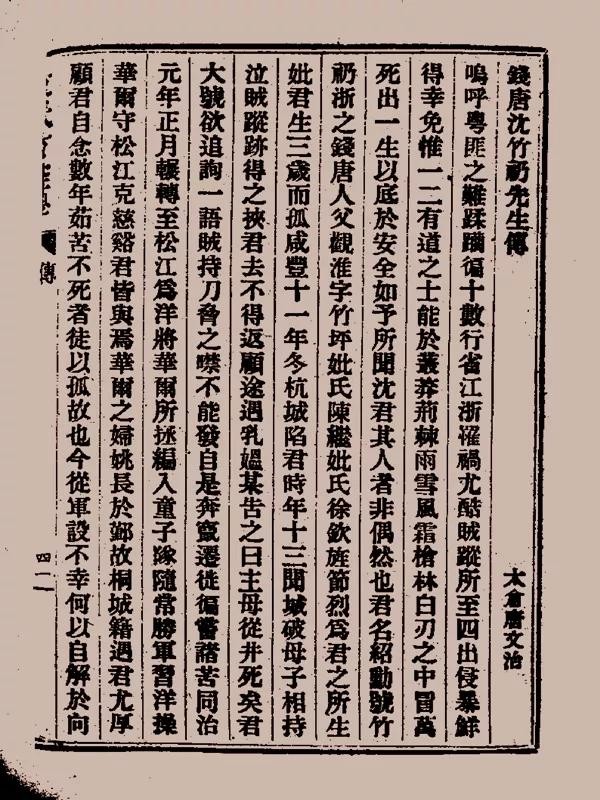 錢唐沈竹礽先生傳
太倉唐文治
嗚呼粵匪之難蹂躪徧十數行省江浙罹禍尤酷賊蹤所至四出侵暴鮮
得幸免惟一二有道之士能於叢莽荊棘雨雪風霜槍林白刃之中冒萬
死出一生以底於安全如予所聞沈君其人者非偶然也君名紹勳號竹
礽浙之錢唐人父觀淮字竹坪妣氏陳繼妣氏徐欽旌節烈爲君之所生
妣君生三歲而孤咸豐十一年冬杭城陷君時年十三聞城破母子相持
泣賊蹤跡得之挾君去不得返顧途遇乳媼某苦之曰主母從井死矣君
大號欲追詢一語賊持刀脅之噤不能發自是奔竄遷徙徧嘗諸苦同治
元年正月輾轉至松江爲洋將華爾所拯編入童子隊隨常勝軍習洋操
華爾守松江克慈谿君皆與焉華爾之婦姚長於鄞故桐城籍遇君尤厚
顧君自念數年茹苦不死者徒以孤故也今從軍設不幸何以自解於向
傳
四一